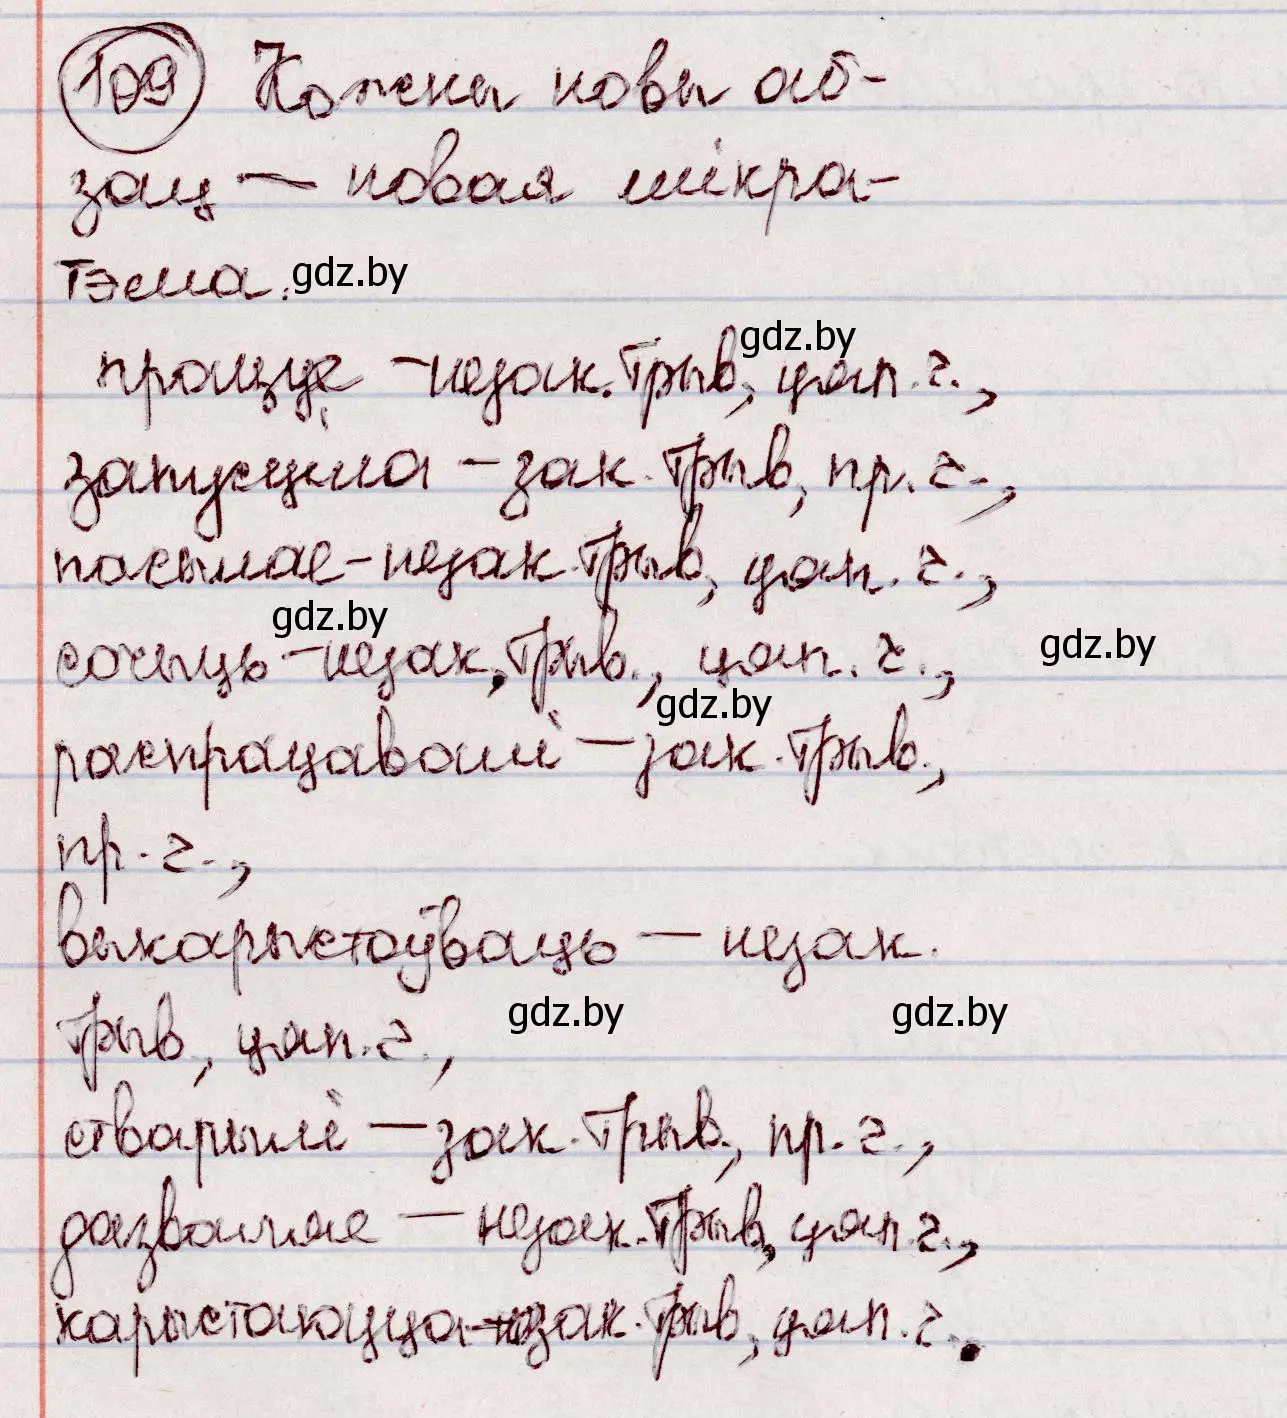 109 Кожны новы аб-
зац — новая мікра-
тэма. gdz.by
gdz.by
працуе - незак. трыв, цяп. г.,
запусціла - зак. трыв, пр. г.,
пасылае - незак. трыв, цяп. г.,
gdz.by
gdz.by
сочыць - незак. трыв., цяп. г.,
gdz.by
распрацавалі - зак. трыв.,
пр. г.,
выкарыстоўваць — незак.
gdz.by gdz.by
трыв, цяп. г.,
стварылі - зак. трыв., пр. г.,
дазваляе - незак. трыв, цяп. г.,
карыстаюцца - незак. трыв, цяп. г..